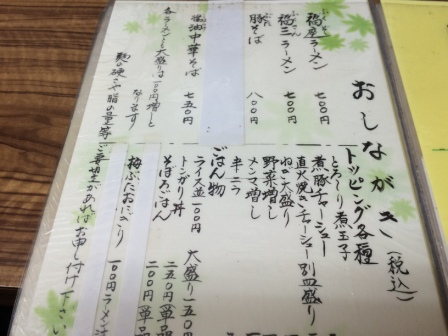 おしながき
(税込)
福座ラーメン 七〇〇
福三ラーメン 七〇〇
豚そば 八〇〇
醤油中華そば 七五〇
各ラーメン大盛りは一〇〇円増しと
なります
麺の硬さや脂の量等ご要望があればお申し付け下さい
トッピング各種
とろ〜り煮玉子
煮豚チャーシュー
直火焼きチャーシュー別皿盛り
ねぎ大盛り
野菜増し
メンマ増し
半ニラ
ごはん物
ライス並一〇〇円 大盛り一五〇円
トンガリ丼 二五〇円
そぼろごはん 二五〇円
梅ぶたおにぎり 一〇〇円